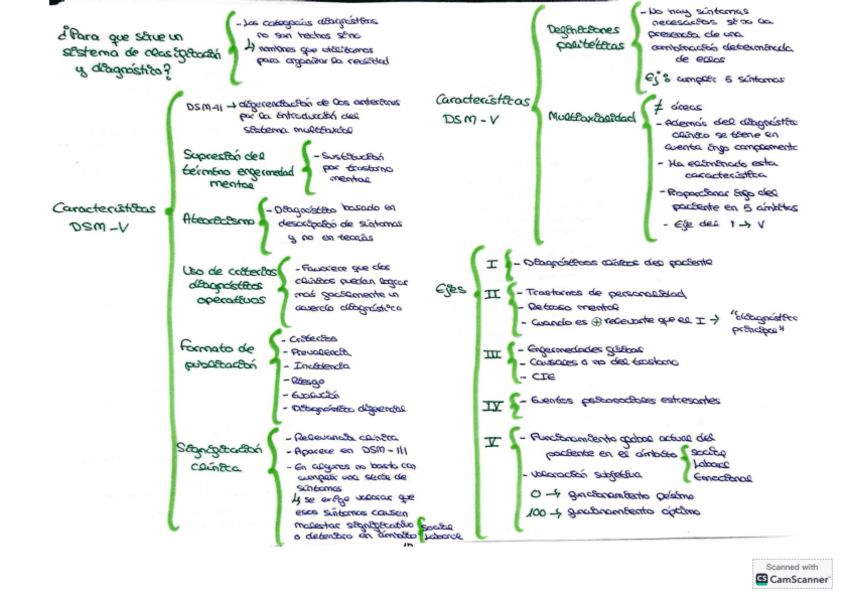 ¿Para que sirve un
sistema de clasificación
y diagnóstico?
- Las categorías diagnósticas
no son hechos sino
↳ nociones que utilizamos
para organizar la realidad
Características
DSM-V
DSM-II → diferenciación de los anteriores
por la introducción del
sistema multiaxial
Supresión del
término enfermedad
mental
- Sustitución
por trastorno
mental
Ateoricismo
- Diagnóstico basado en
descripción de síntomas
y no en teorías
Uso de criterios
diagnósticos
operativos
- Favorece que dos
clínicos puedan lograr
más fácilmente un
acuerdo diagnóstico
Formato de
publicación
- Criterios
- Prevalencia
- Incidencia
- Riesgo
- Evolución
- Diagnóstico diferencial
Significación
clínica
- Relevancia clínica
- Aparece en DSM-III
- En algunos no basta con
cumplir una serie de
síntomas
↳ se exige valorar que
esos síntomas causen
malestar significativo
o deterioro en ámbito
social
laboral
Características
DSM-V
Definiciones
politéticas
- No hay síntomas
necesarios sino la
presencia de una
combinación determinada
de ellos
Ej: cumplir 5 síntomas
Multiaxialidad
≠ áreas
- Además del diagnóstico
clínico se tiene en
cuenta info complement
- Ha eliminado esta
característica
- Proporcionar info del
paciente en 5 ámbitos
- Eje del I → V
Ejes
I
- Diagnósticos clínicos del paciente
II
- Trastornos de personalidad
- Retraso mental
- Cuando es ⊕ relevante que el I → "diagnóstico
principal"
III
- Enfermedades físicas
- Causales o no del trastorno
- CIE
IV
- Eventos psicosociales estresantes
V
- Funcionamiento global actual del
paciente en el ámbito
Social
Laboral
Emocional
- Valoración subjetiva
0 → funcionamiento pésimo
100 → funcionamiento óptimo
Scanned with
CS CamScanner